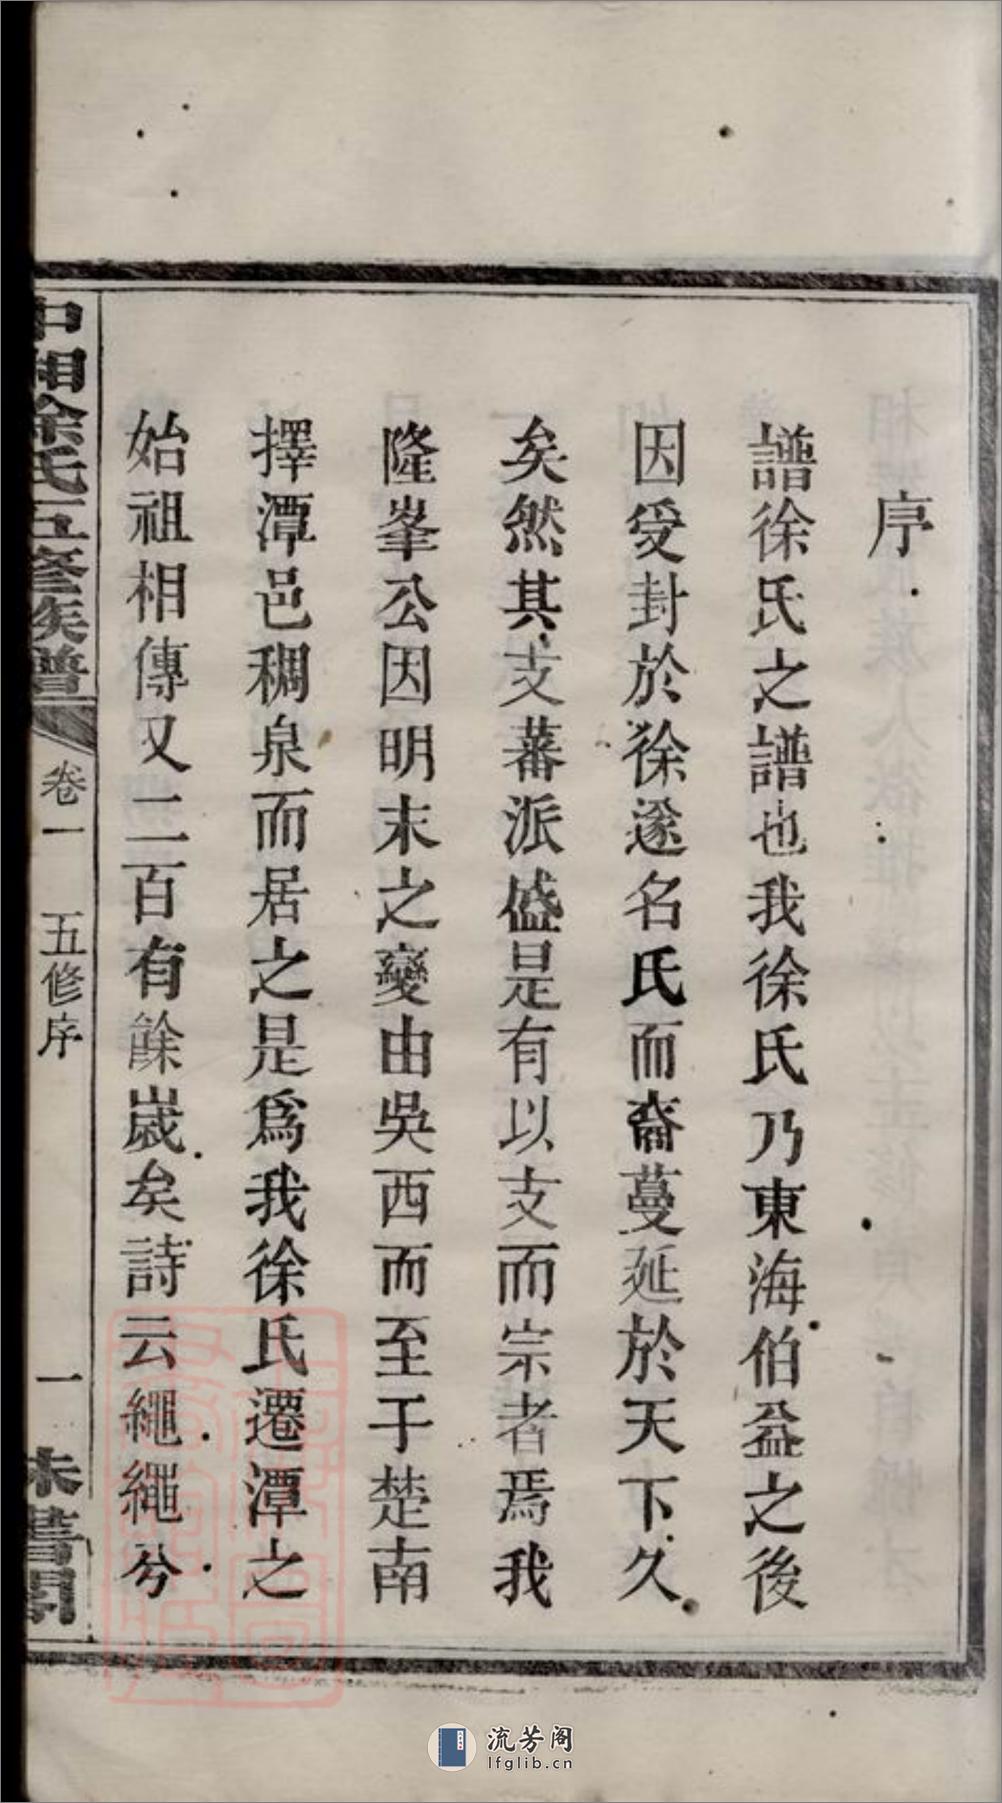 序
譜徐氏之譜也我徐氏乃東海伯益之後
因受封於徐遂名氏而裔蔓延於天下久
矣然其支蕃派盛是有以支而宗者焉我
隆峯公因明末之變由吳西而至于楚南
擇潭邑稠泉而居之是爲我徐氏遷潭之
始祖相傳又二百有餘歲矣詩云繩繩兮
中湘徐氏五修族譜
卷一 五修序
一
流芳阁
lfglib.cn